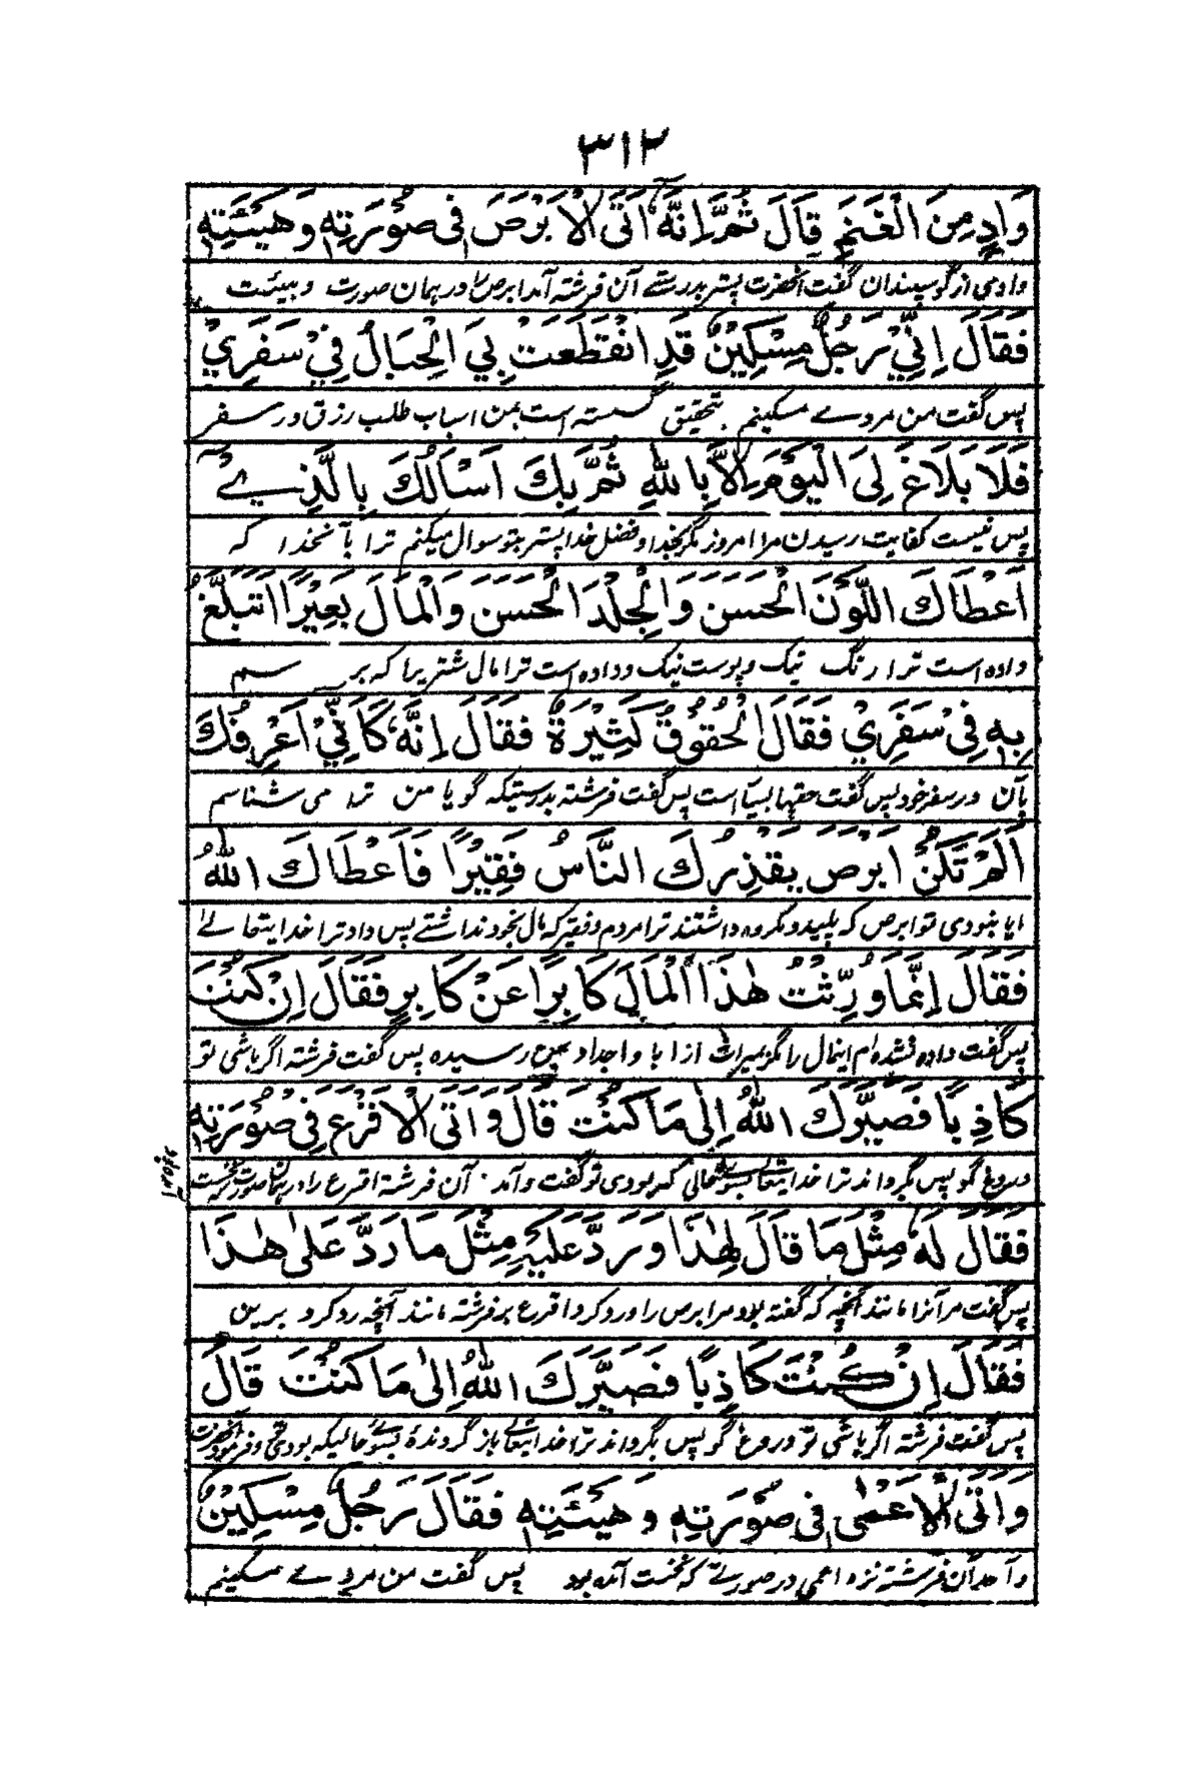 ٣١٢
وَادٍ مِنَ الْغَنَمِ قَالَ ثُمَّ اِنَّهٗ اَتَى الْاَبْرَصَ فِى صُوْرَتِهٖ وَهَيْئَتِهٖ
وادی از گوسپندان گفت آنحضرت پستر بدرستے آن فرشته آمد ابرص را در همان صورت و هیئت
فَقَالَ اِنِّيْ رَجُلٌ مِسْكِيْنٌ قَدِ انْقَطَعَتْ بِيَ الْحِبَالُ فِيْ سَفَرِيْ
پس گفت من مردے مسکینم بتحقیق گسسته است بمن اسباب طلب رزق در سفر
فَلَا بَلَاغَ لِىَ الْيَوْمَ اِلَّا بِاللّٰهِ ثُمَّ بِكَ اَسْاَلُكَ بِالَّذِيْ
پس نیست کفایت رسیدن مرا امروز مگر بخدا و فضل خدا پستر بتو سوال میکنم ترا بآنخدا که
اَعْطَاكَ اللَّوْنَ الْحَسَنَ وَالْجِلْدَ الْحَسَنَ وَالْمَالَ بَعِيْرًا اَتَبَلَّغُ
داده است ترا رنگ نیک و پوست نیک و داده است ترا مال شتریرا که برسم
بِهٖ فِىْ سَفَرِيْ فَقَالَ الْحُقُوْقُ كَثِيْرَةٌ فَقَالَ اِنَّهٗ كَاَنِّيْ اَعْرِفُكَ
بآن در سفر خود پس گفت حقها بسیار است پس گفت فرشته بدرستیکه گویا من ترا می شناسم
اَلَمْ تَكُنْ اَبْرَصَ يَقْذَرُكَ النَّاسُ فَقِيْرًا فَاَعْطَاكَ اللّٰهُ
ایا نبودی تو ابرص که پلید و مکروه داشتند ترا مردم و فقیر که مال بخود نداشتے پس داد ترا خدایتعالے
فَقَالَ اِنَّمَا وُرِّثْتُ هٰذَا الْمَالَ كَابِرًا عَنْ كَابِرٍ فَقَالَ اِنْ كُنْتَ
پس گفت داده نشده ام اینمال را مگر بمیراث از ابا و اجداد بمن رسیده پس گفت فرشته اگر باشی تو
كَاذِبًا فَصَيَّرَكَ اللّٰهُ اِلٰى مَا كُنْتَ قَالَ وَاَتَى الْاَقْرَعَ فِىْ صُوْرَتِهٖ
دروغ گو پس بگرداند ترا خدایتعالے بسوے حالی که بودی تو گفت و آمد آن فرشته اقرع را در همان صورت
فَقَالَ لَهٗ مِثْلَ مَا قَالَ لِهٰذَا وَرَدَّ عَلَيْهِ مِثْلَ مَا رَدَّ عَلٰى هٰذَا
پس گفت مر آنرا مانند آنچه که گفته بود مر ابرص را و رد کرد اقرع بر فرشته مانند آنچه رد کرد برین
فَقَالَ اِنْ كُنْتَ كَاذِبًا فَصَيَّرَكَ اللّٰهُ اِلٰى مَا كُنْتَ قَالَ
پس گفت فرشته اگر باشی تو دروغ گو پس بگرداند ترا خدایتعالے باز گردنده بسوے حالیکه بودی و فرمود آنحضرت
وَاَتَى الْاَعْمٰى فِى صُوْرَتِهٖ وَهَيْئَتِهٖ فَقَالَ رَجُلٌ مِسْكِيْنٌ
و آمد آن فرشته نزد اعمی در صورتے که نخست آمده بود پس گفت من مردے مسکینم